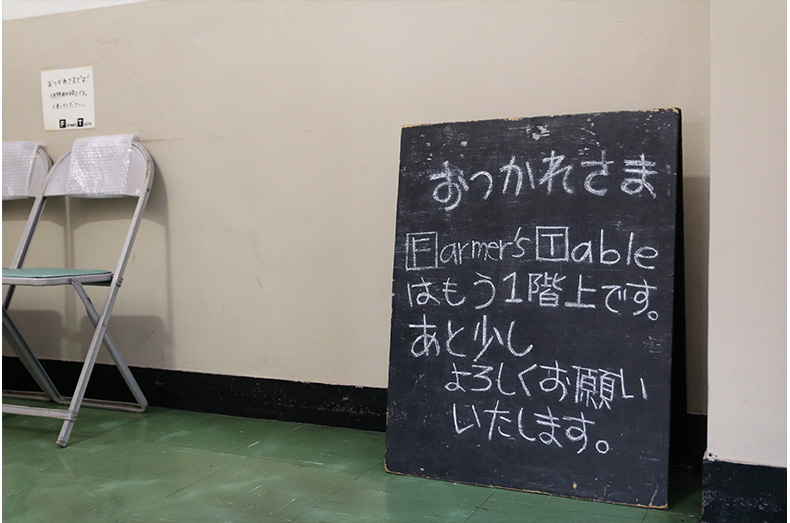 おつかれさまです!
Farmer's Table
おつかれさま
Farmer's Table
はもう1階上です。
あと少し
よろしくお願い
いたします。